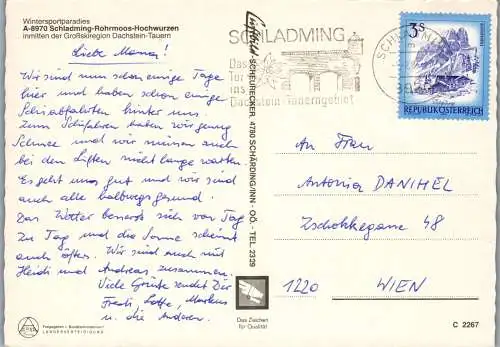 Wintersportparadies
A-8970 Schladming-Rohrmoos-Hochwurzen
inmitten der Großskiregion Dachstein-Tauern
Liebe Mama!
Wir sind nun schon einige Tage
hier und haben schon einige
Schiabfahrten hinter uns.
Zum Schifahren haben wir genug
Schnee und wir müssen auch
bei den Liften nicht lange warten.
Es geht uns gut und wir sind
auch alle halbwegs gesund.
Das Wetter bessert sich von Tag
zu Tag und die Sonne scheint
auch öfters. Wir sind auch mit
Heidi und Andreas zusammen.
Viele Grüße sendet Dir
Lotte, Markus
u. die Anderen.
SCHLADMING
Das
Tor
ins
Dachstein-Tauerngebiet
SCHLADMING
8970
3 S
REPUBLIK ÖSTERREICH
SCHEURECKER, 4780 SCHÄRDING/INN - OÖ. - TEL. 2329
An Frau
Antonia DANIHEL
Zschokkegasse 48
1220 WIEN
Das Zeichen
für Qualität
C 2267
Freigegeben v. Bundesministerium f.
LANDESVERTEIDIGUNG